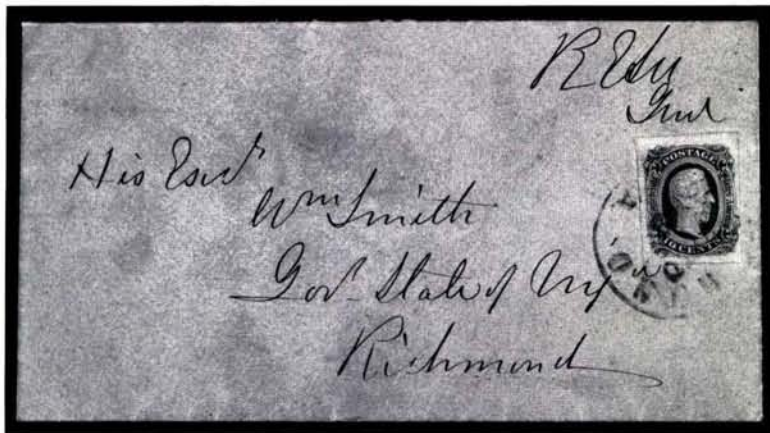 R E Lee
Genl
His Excy
Wm Smith
Govr State of Virga
Richmond
POSTAGE
10 CENTS